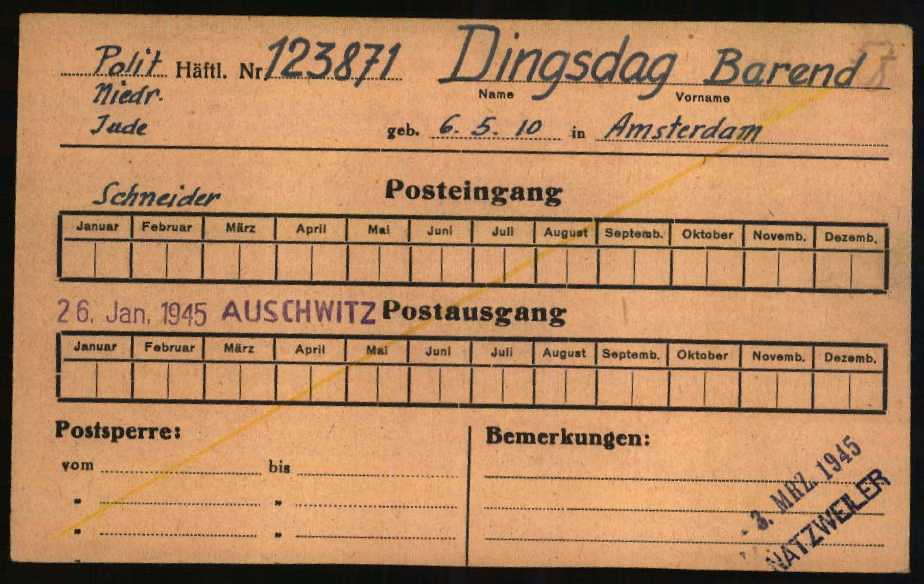 Polit Häftl. Nr. 123871 Dingsdag Barend
Name Vorname
Niedr.
Jude geb. 6. 5. 10 in Amsterdam
Schneider Posteingang
Januar Februar März April Mai Juni Juli August Septemb. Oktober Novemb. Dezemb.
26. Jan. 1945 AUSCHWITZ Postausgang
Januar Februar März April Mai Juni Juli August Septemb. Oktober Novemb. Dezemb.
Postsperre: Bemerkungen:
vom bis
" "
" "
- 3. MRZ. 1945
NATZWEILER